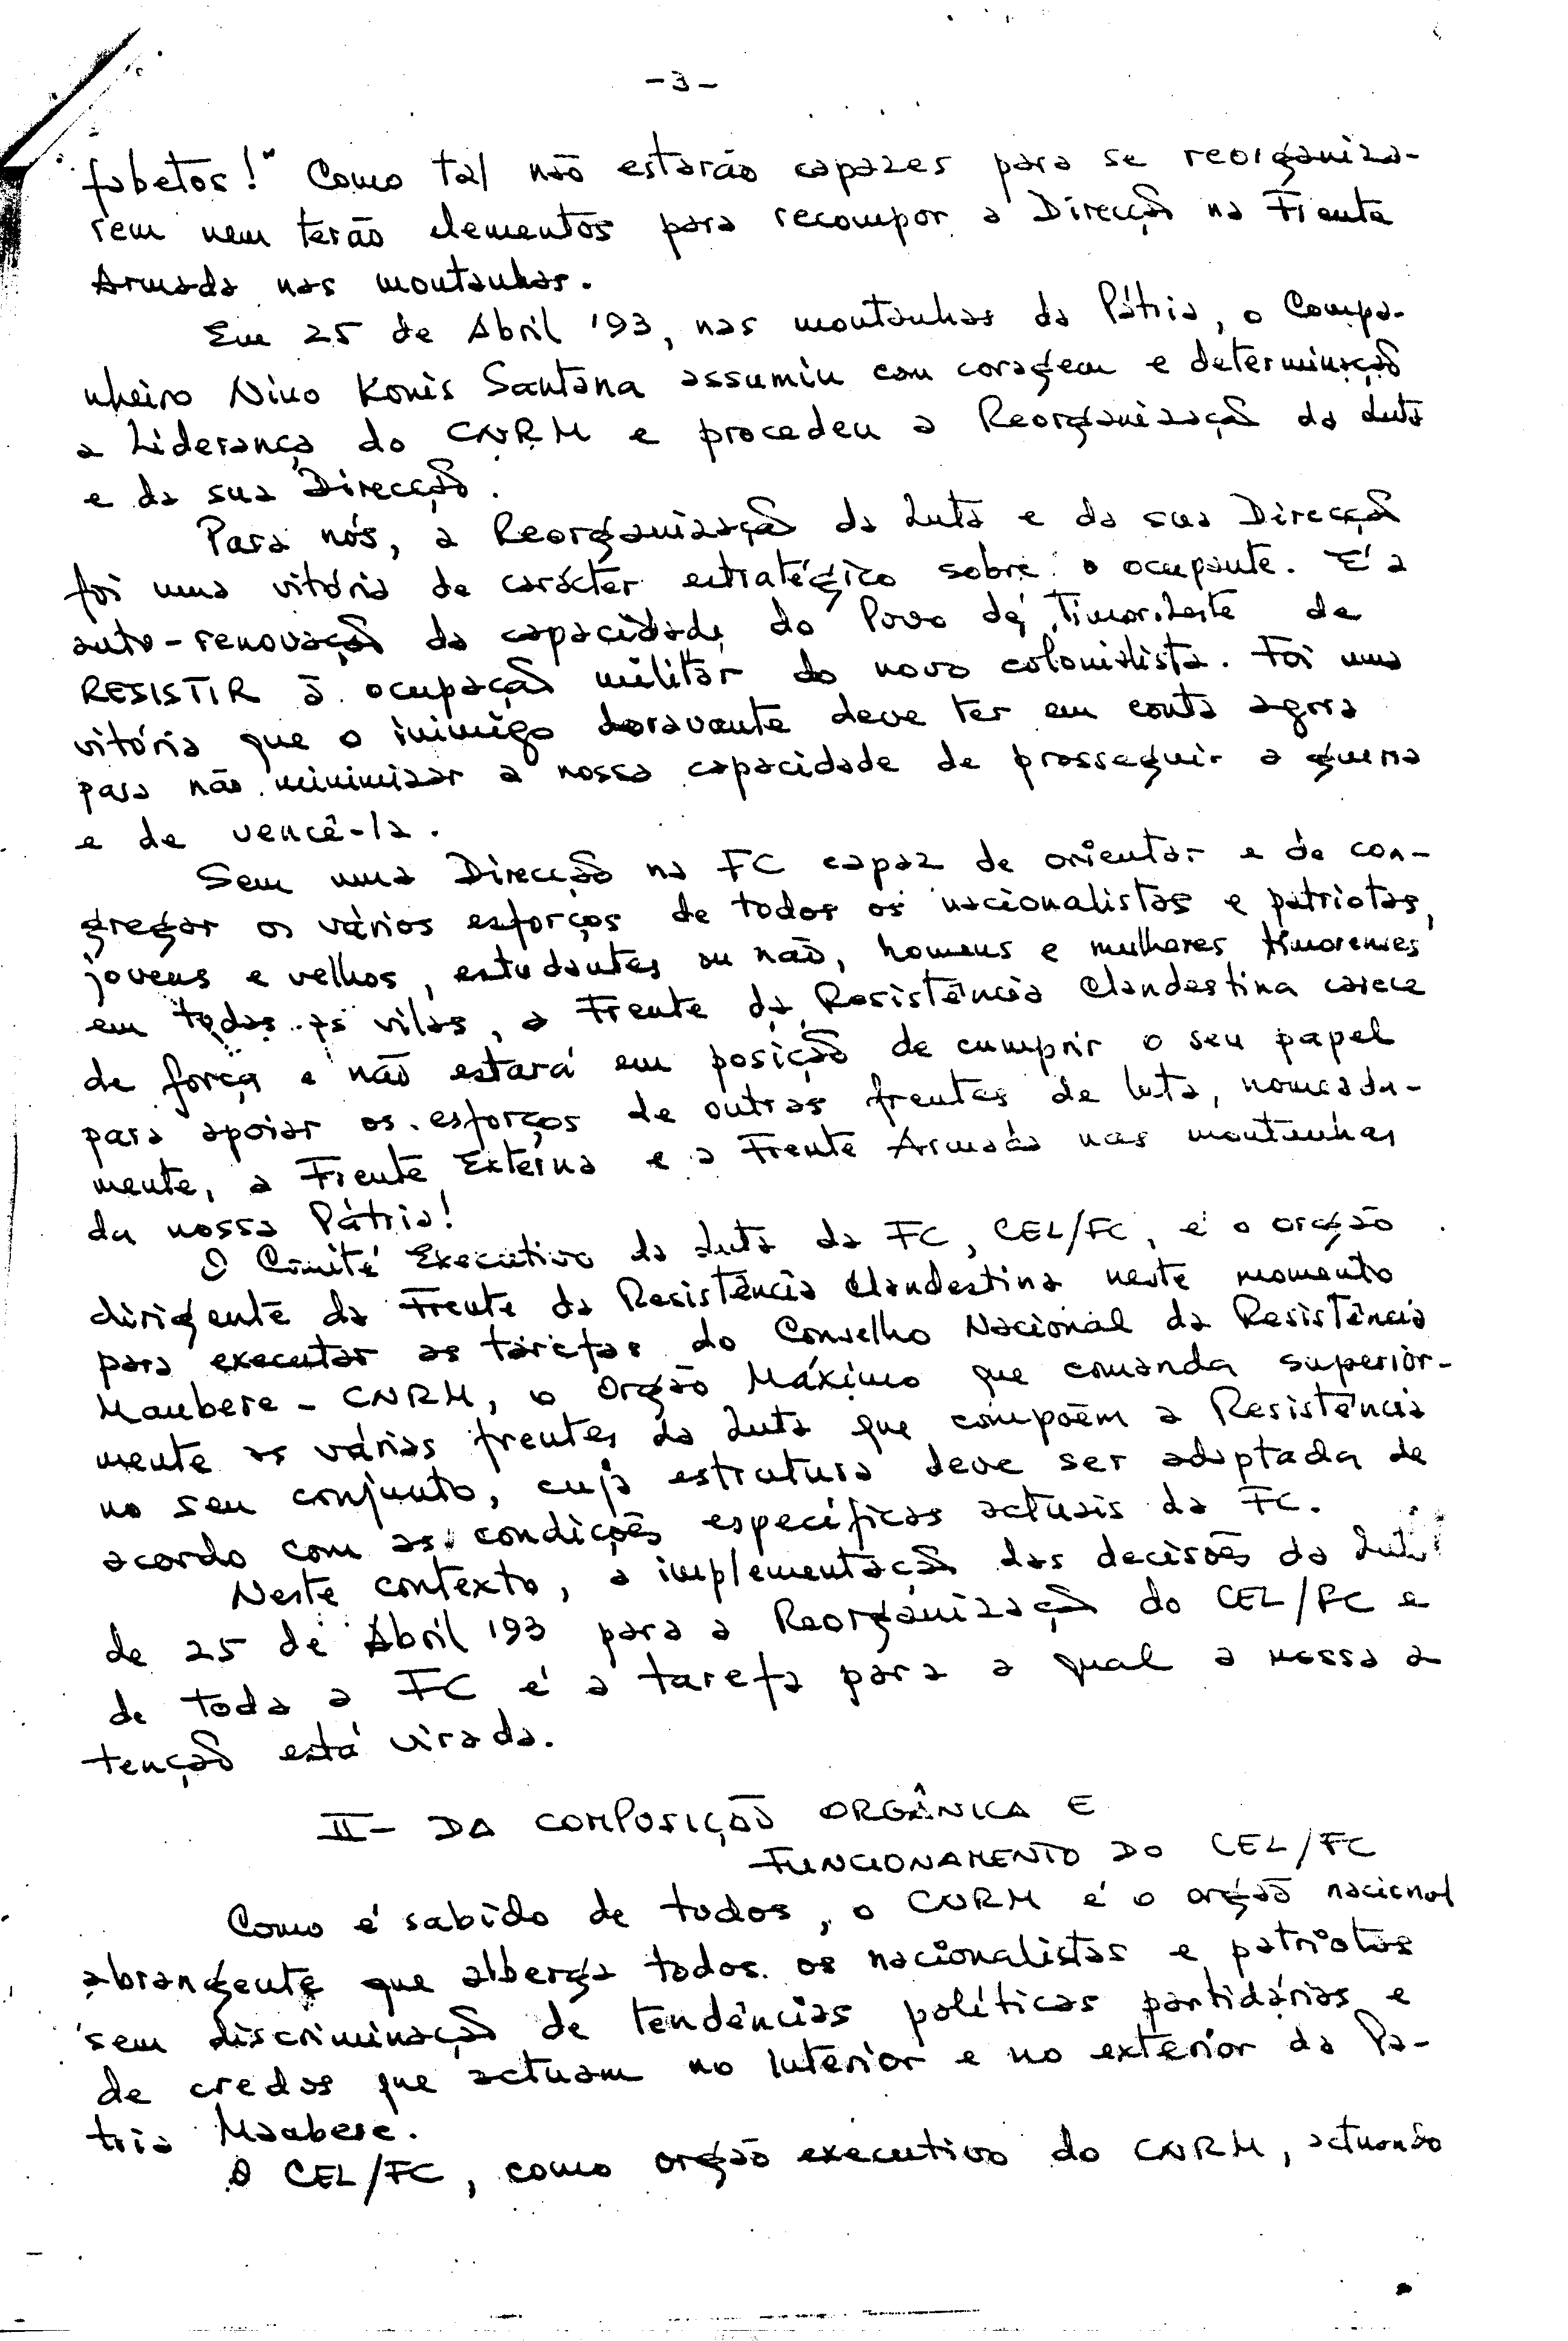 -3-
fabetos!" Como tal não estarão capazes para se reorganiza-
rem nem terão elementos para recompor a Direcção na Frente
Armada nas montanhas.
Em 25 de Abril '93, nas montanhas da Pátria, o Compa-
nheiro Nino Konis Santana assumiu com coragem e determinação
a Liderança do CNRM e procedeu a Reorganização da Luta
e da sua Direcção.
Para nós, a Reorganização da Luta e da sua Direcção
foi uma vitória de carácter estratégico sobre o ocupante. É a
auto-renovação da capacidade do Povo de Timor-Leste de
RESISTIR à ocupação militar do novo colonialista. Foi uma
vitória que o inimigo doravante deve ter em conta agora
para não minimizar a nossa capacidade de prosseguir a guerra
e de vencê-la.
Sem uma Direcção na FC capaz de orientar e de con-
gregar os vários esforços de todos os nacionalistas e patriotas,
jovens e velhos, estudantes ou não, homens e mulheres timorenses
em todas as vilas, a Frente da Resistência Clandestina carece
de força e não estará em posição de cumprir o seu papel
para apoiar os esforços de outras frentes de luta, nomeada-
mente, a Frente Externa e a Frente Armada nas montanhas
da nossa Pátria!
O Comité Executivo da Luta da FC, CEL/FC, é o orgão
dirigente da Frente da Resistência Clandestina neste momento
para executar as tarefas do Conselho Nacional da Resistência
Maubere - CNRM, o Orgão Máximo que comanda superior-
mente as várias frentes da Luta que compõem a Resistência
no seu conjunto, cuja estrutura deve ser adaptada de
acordo com as condições específicas actuais da FC.
Neste contexto, a implementação das decisões da Luta
de 25 de Abril '93 para a Reorganização do CEL/FC e
de toda a FC é a tarefa para a qual a nossa a
tenção está virada.
II- DA COMPOSIÇÃO ORGÂNICA E
FUNCIONAMENTO DO CEL/FC
Como é sabido de todos, o CNRM é o orgão nacional
abrangente que alberga todos os nacionalistas e patriotas
sem discriminação de tendências políticas partidárias e
de credos que actuam no interior e no exterior da Pá-
tria Maubere.
O CEL/FC, como orgão executivo do CNRM, actuando